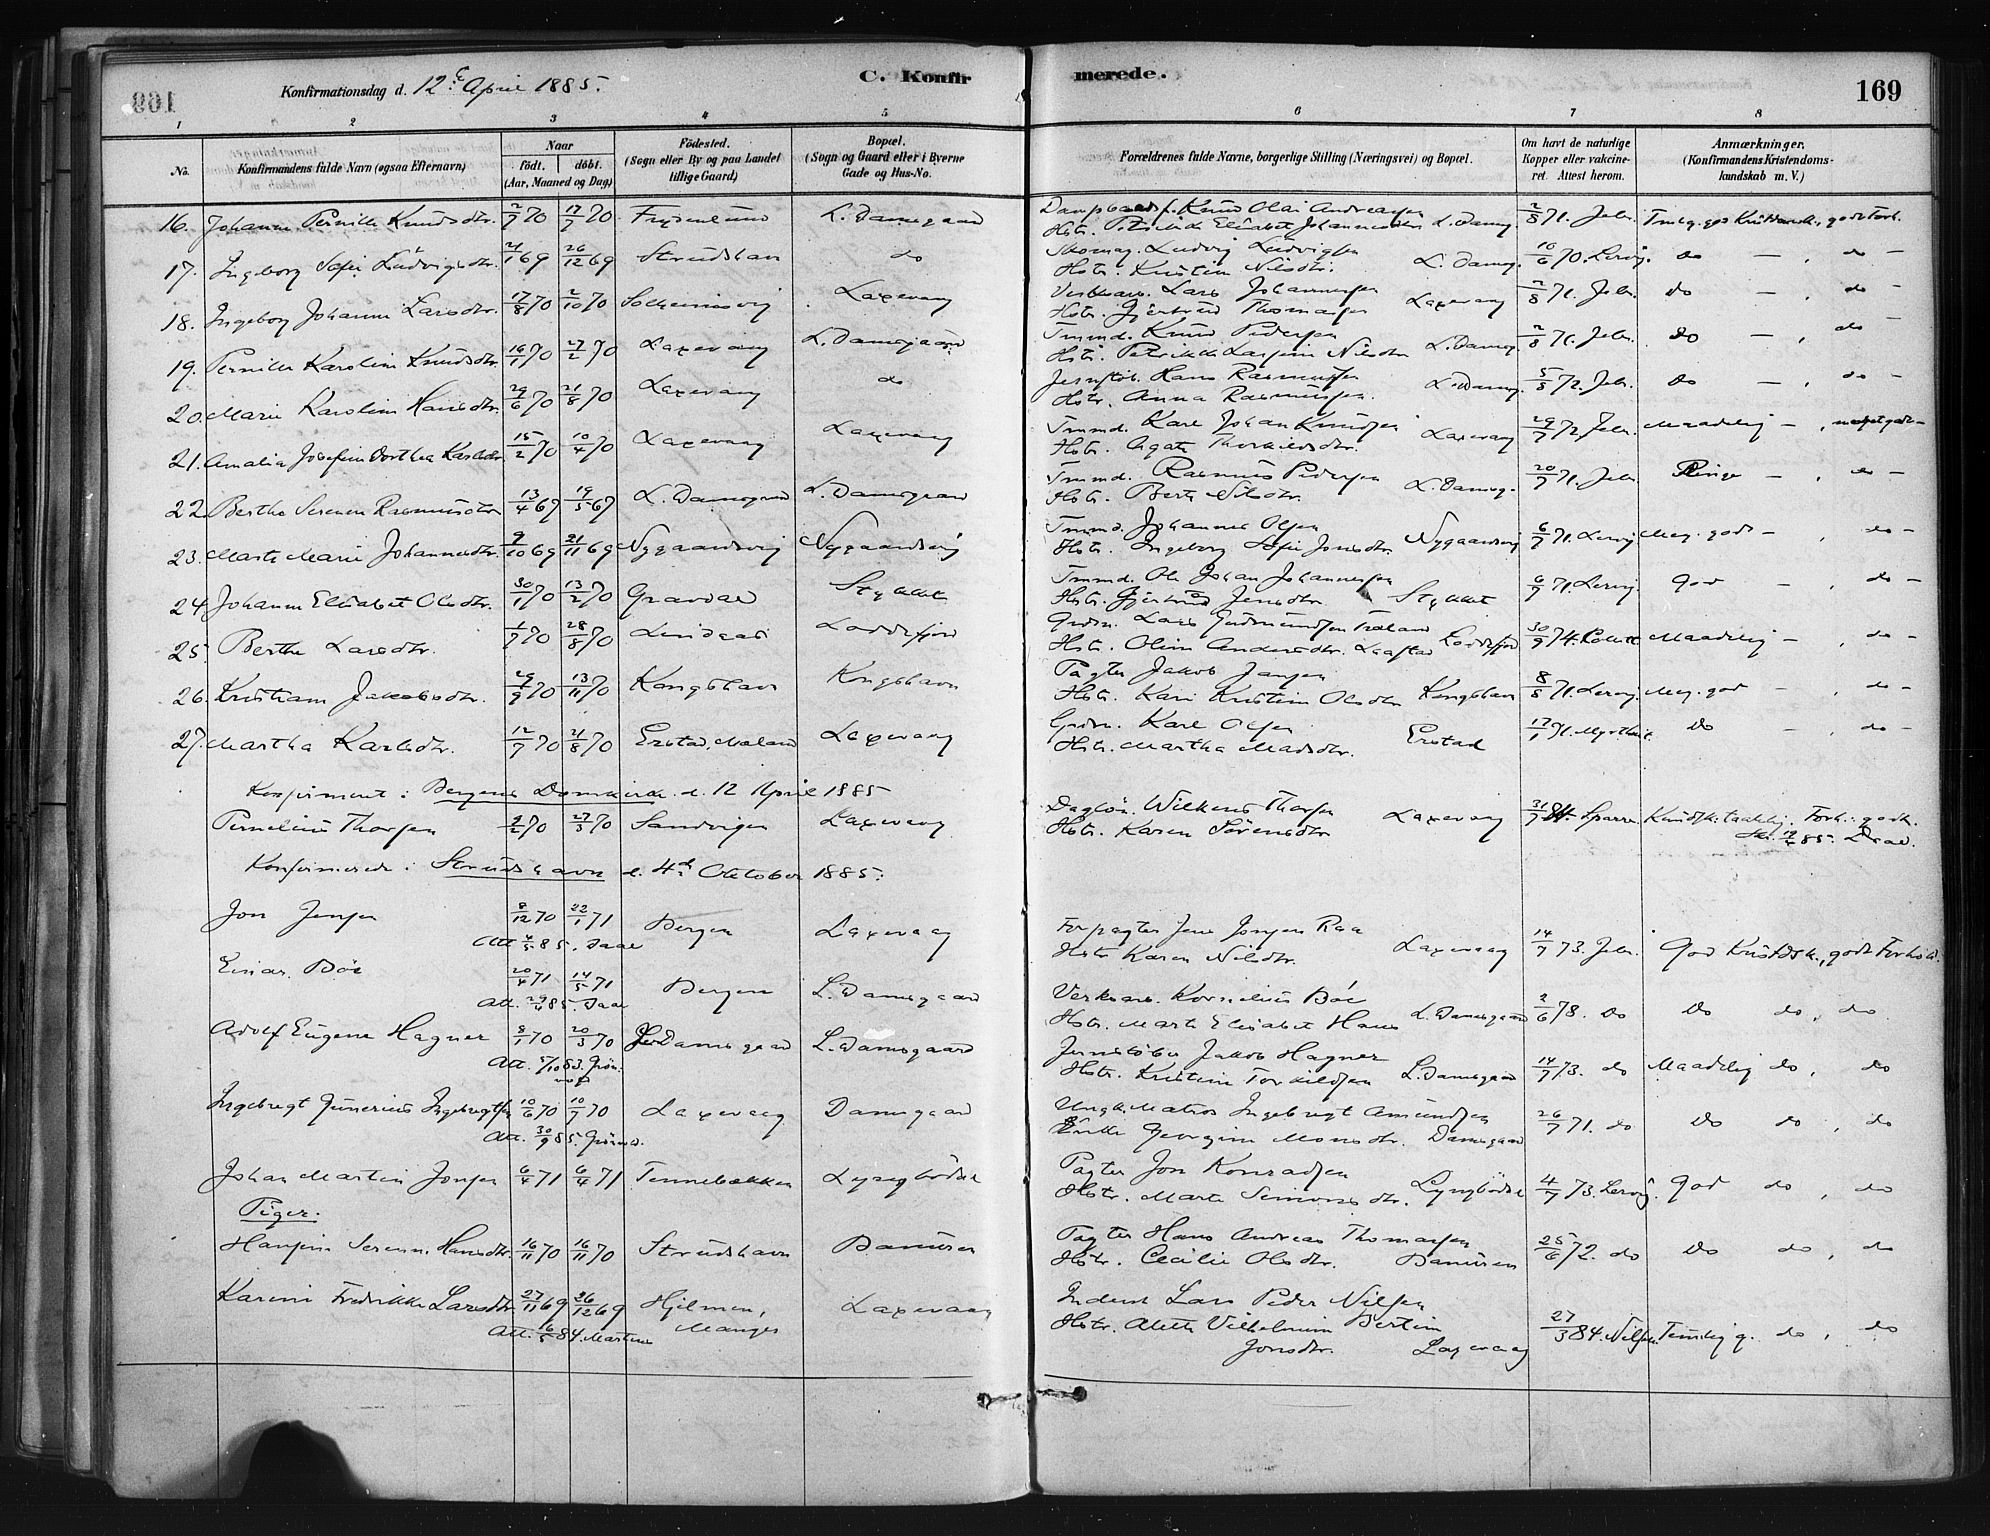 169
Konfirmationsdag d. 12te April 1885.
C. Konfirmerede.
169
1 2 3 4 5 6 7 8
No.
Konfirmandens fulde Navn (ogsaa Efternavn)
Naar
født. døbt.
(Aar, Maaned og Dag)
Fødested.
(Sogn eller By og paa Landet tillige Gaard)
Bopæl.
(Sogn og Gaard eller i Byerne Gade og Hus-No.
Forældrenes fulde Navne, borgerlige Stilling (Næringsvei) og Bopæl.
Om havt de naturlige Kopper eller vakcineret. Attest herom.
Anmærkninger,
(Konfirmandens Kristendomskundskab m. V.)
16. Johanne Pernille Knudsdtr. 2/7 70 17/7 70 Frydenlund L. Damsgaard Knud Olai Andreassen L. Damsg. 2/8 71. Jebs.
Hstr. Elisabet Johannesdtr
17. Ingeborg Sofie Ludvigsdtr. 21/1 69 26/12 69 Strudshavn do Skomag. Ludvig Ludvigsen L. Damsg. 10/6 70. Lervig. do — , do —
Hstr. Kristin Nilsdtr.
18. Ingeborg Johanne Larsdtr. 17/8 70 2/10 70 Solheimsvig Laxevaag Lars Johannessen Laxevaag 2/8 71. Jebs. do — , do —
Hstr. Gjertrud Thomassen
19. Pernille Karoline Knudsdtr. 16/1 70 27/2 70 Laxevaag L. Damsgaard Tmmd. Knud Pedersen L. Damsg. 2/8 71. Jebs. do — , do —
Hstr. Nilsdtr
20. Marie Karoline Hansdtr. 29/6 70 21/8 70 Laxevaag do Jernstøb. Hans Rasmussen L. Damsg. 5/8 72. Jebs. do — , do —
Hstr. Anna Rasmussen.
21. Amalia Josefine Dorthea Karlsdtr 15/2 70 10/4 70 Laxevaag Laxevaag Tmmd. Karl Johan Knudsen Laxevaag 29/7 72. Jebs. Maadelig — , meget godt —
Hstr. Agate Thorkildsdtr.
22. Berthe Serene Rasmusdtr 13/4 67 19/5 67 L. Damsgaard L. Damsgaard Tmmd. Rasmus Pedersen L. Damsg. 20/7 71. Jebs. Ringe — , do —
Hstr. Berte Nilsdtr.
23. Marte Marie Johannesdtr. 9/10 69 21/11 69 Nygaardsvig Nygaardsvig Tmmd. Johannes Olsen Nygaardsvig 6/7 71. Lervig Meg. godt — , do —
Hstr. Ingeborg Sofie Jonsdtr
24. Johanne Elisabet Olsdtr. 30/1 70 13/2 70 Gravdal Stykket Tmmd. Ole Johan Johannessen Stykket 6/7 71. Lervig. God — , do —
Hstr. Gjertrud Jensdtr.
25. Berthe Larsdtr. 1/7 70 28/8 70 Lindaas Loddefjord Grdm. Lars Gudmundsen Loddefjord 30/9 74. Maadelig — , do —
Hstr. Oline Andersdtr.
26. Kristiane Jakobsdtr. 29/9 70 13/11 70 Kongshavn Kongshavn Pagter Jakob Jansen Kongshavn 8/8 71. Lervig. Meg. god — , do —
Hstr. Kari Kristine Olsdtr
27. Martha Karlsdtr. 12/7 70 21/8 70 Erstad, Maland Laxevaag Grdm. Karl Olsen Erstad 17/1 71. do — , do —
Hstr. Martha Madsdtr.
Konfirmeret i Bergens Domkirke d. 12 April 1885
Pernelius Thorsen 9/2 70 27/3 70 Sandvigen Laxevaag Dagløn. Wilkens Thorsen Laxevaag 31/7 84. Sparre
Hstr. Karen Sørensdtr
Konfirmerede i Strudshavn d. 4de Oktober 1885.
Jon Jensen 8/12 70 22/1 71 Bergen Laxevaag Forpagter Jens Jonsen Raa Laxevaag 14/7 73. Jebs. God Kristdsk., godt Forhold.
Att. 4/5 85. Daae Hstr Karen Nilsdtr.
Einar Bøe 20/4 71 14/5 71 Bergen L. Damsgaard Kornelius Bøe L. Damsgaard 2/6 78. do do do, do
Att. 29/4 85. Daae Hstr. Marte Elisabet Hans
Adolf Eugene Hagner 8/1 70 20/3 70 L. Damsgaard L. Damsgaard Jernstøber Jakob Hagner L. Damsgaard 14/7 73. do Maadelig do, do
Att. 5/10 83. Hstr. Kristine Torkildsen
Ingebregt Gunerius Ingebregtsen 10/6 70 10/7 70 Laxevaag Damsgaard Ungk. Matros Ingebregt Amundsen 26/7 71. do do do, do
Att. 30/9 85. Enke Georgine Monsdtr. Damsgaard
Johan Martin Jonsen 6/4 71 6/4 71 Tennebekken Lyngbødal Pagter Jon Konradsen Lyngbødal 4/7 73. Lervig. God do, do
Hstr. Marte Simonsdtr.
Piger:
Hansine Serene Hansdtr. 16/11 70 16/11 70 Strudshavn Pagter Hans Andreas Thomassen 25/6 72. do do do, do
Hstr. Cecilie Olsdtr.
Karine Fredrikke Larsdtr 27/11 69 26/12 69 Hjelmen, Manger Laxevaag Inderst Lars Peder Nilsen 27/3 84. Nilsen. Temlig g. do, do
Att. 6/5 84. Martens Hstr. Alette Vilhelmine Bertine
Jonsdtr. Laxevaag